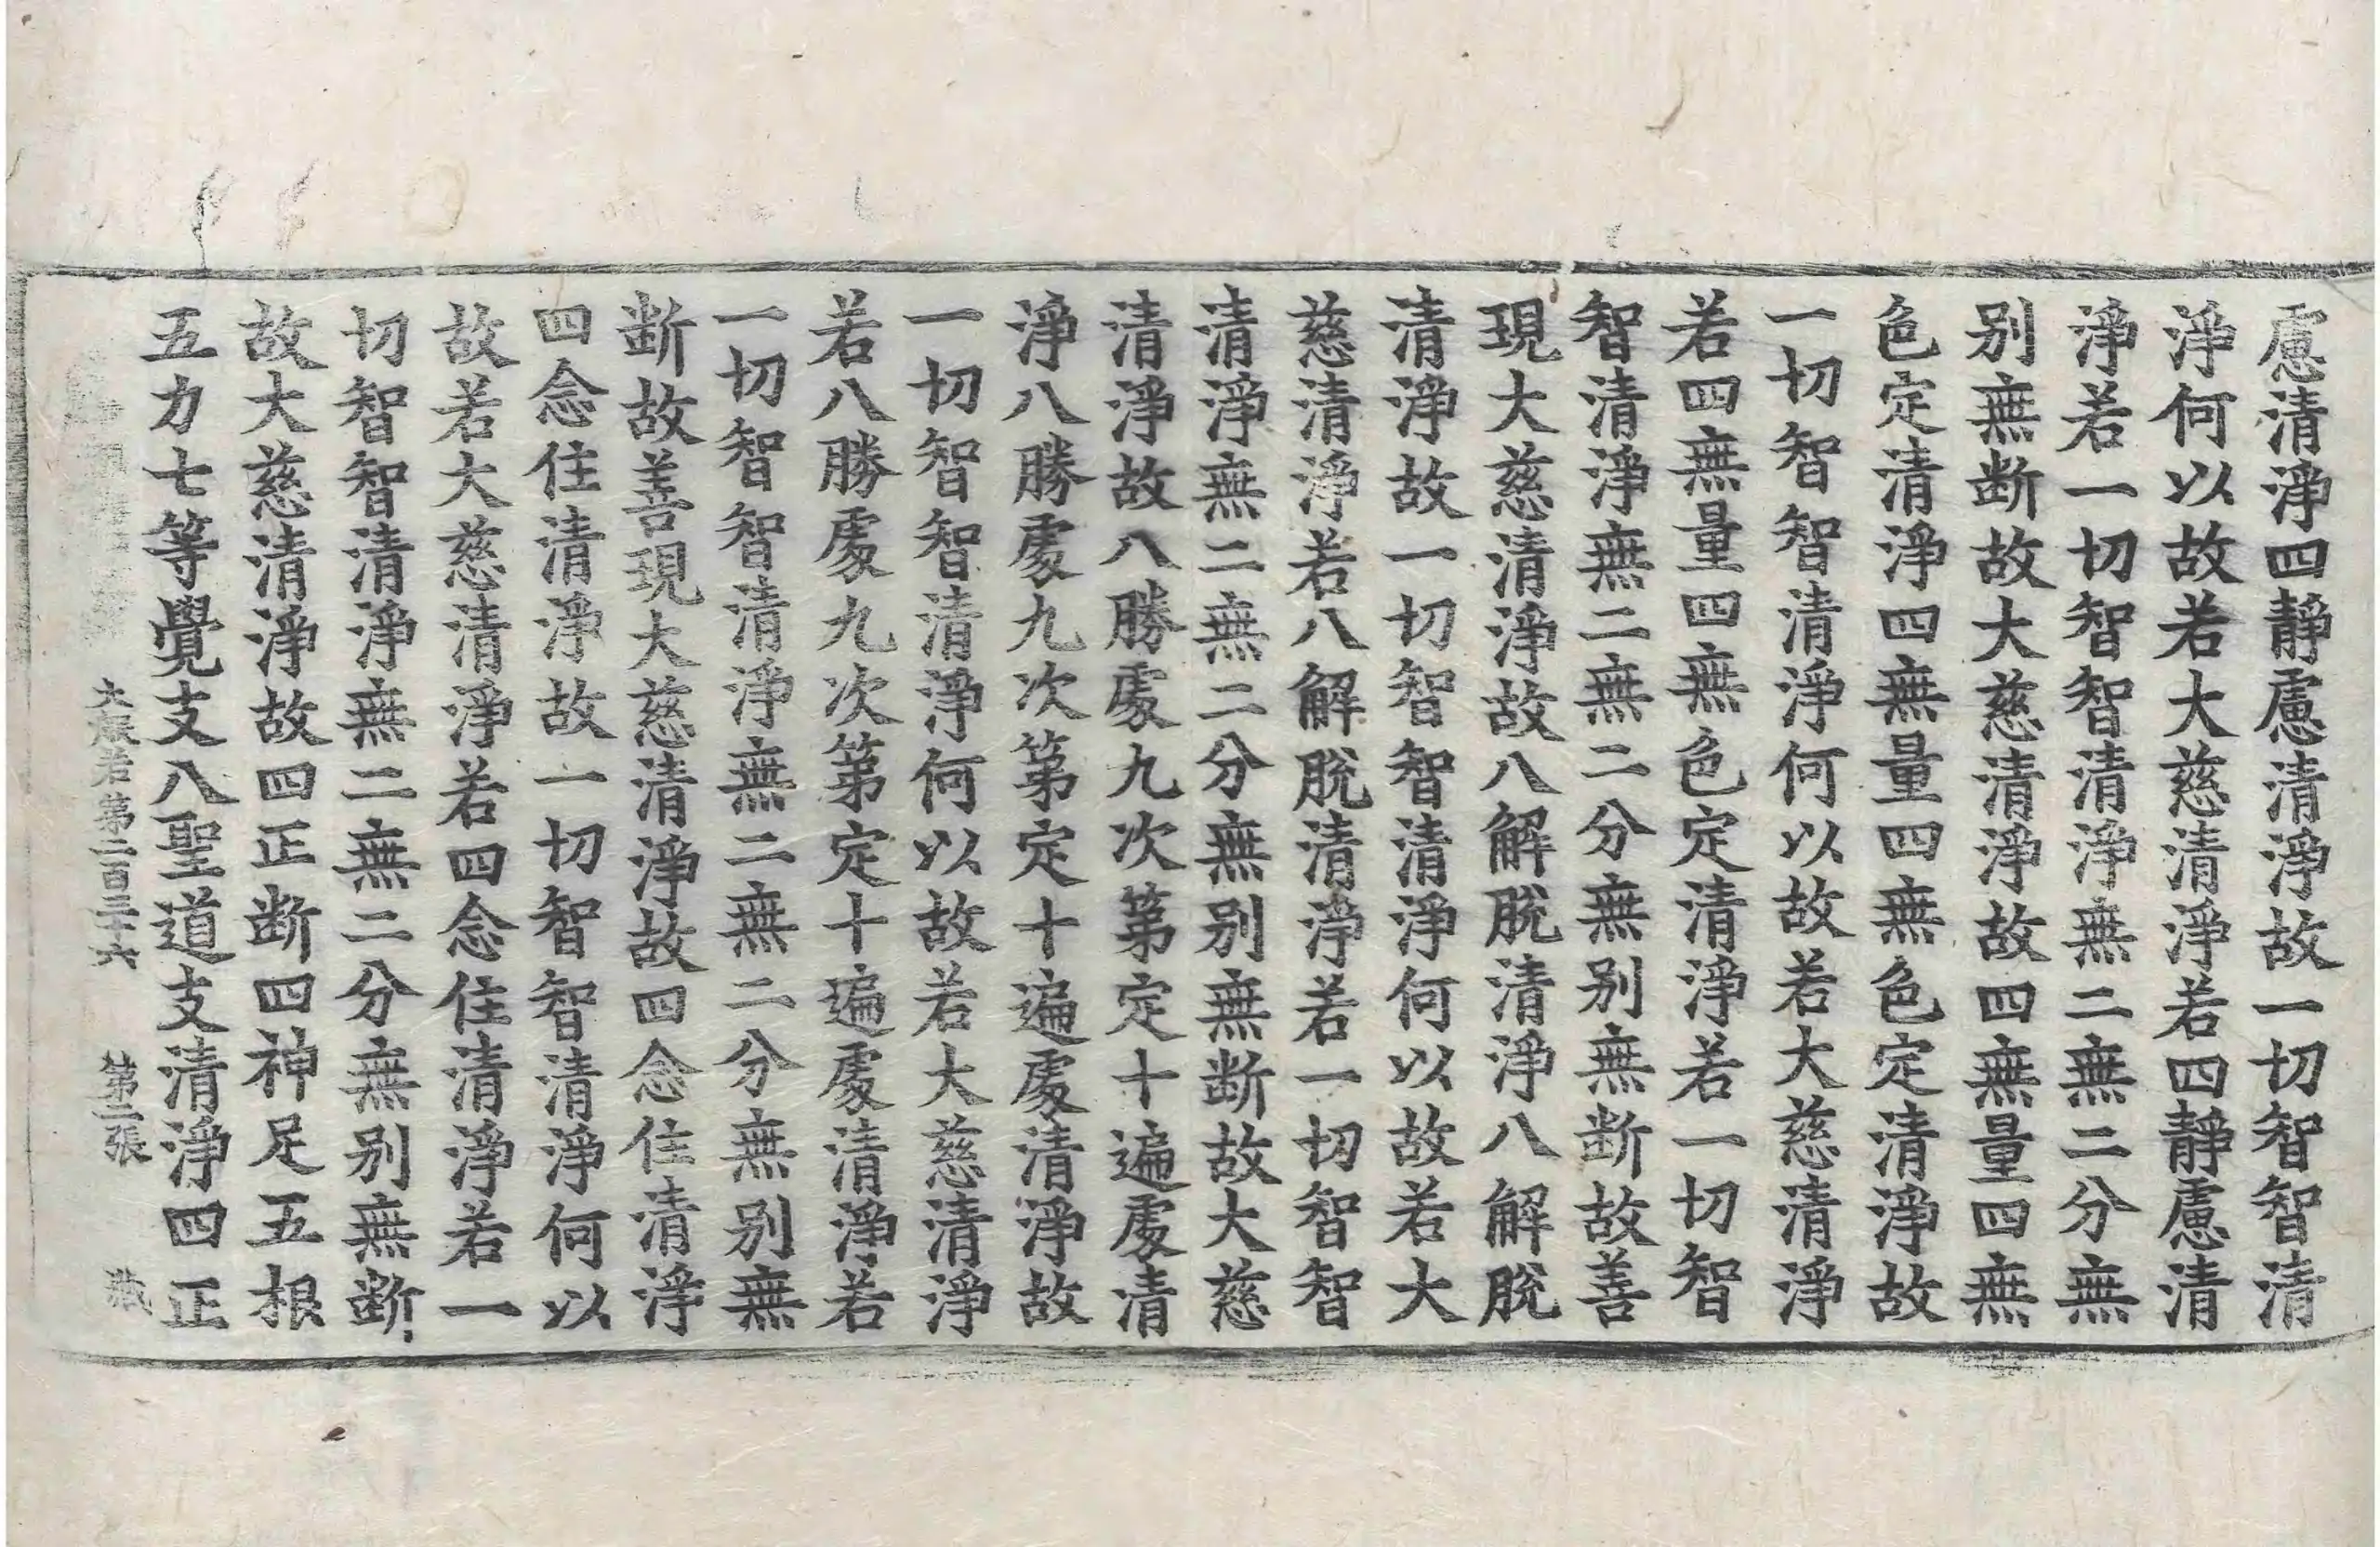 慮清淨四靜慮清淨故一切智智清
淨何以故若大慈清淨若四靜慮清
淨若一切智智清淨無二無二分無
別無断故大慈清淨故四無量四無
色定清淨四無量四無色定清淨故
一切智智清淨何以故若大慈清淨
若四無量四無色定清淨若一切智
智清淨無二無二分無別無断故善
現大慈清淨故八解脫清淨八解脫
清淨故一切智智清淨何以故若大
慈清淨若八解脫清淨若一切智智
清淨無二無二分無別無断故大慈
清淨故八勝處九次第定十遍處清
淨八勝處九次第定十遍處清淨故
一切智智清淨何以故若大慈清淨
若八勝處九次第定十遍處清淨若
一切智智清淨無二無二分無別無
断故善現大慈清淨故四念住清淨
四念住清淨故一切智智清淨何以
故若大慈清淨若四念住清淨若一
切智智清淨無二無二分無別無断
故大慈清淨故四正断四神足五根
五力七等覺支八聖道支清淨四正
大般若第二百三十六 第二張